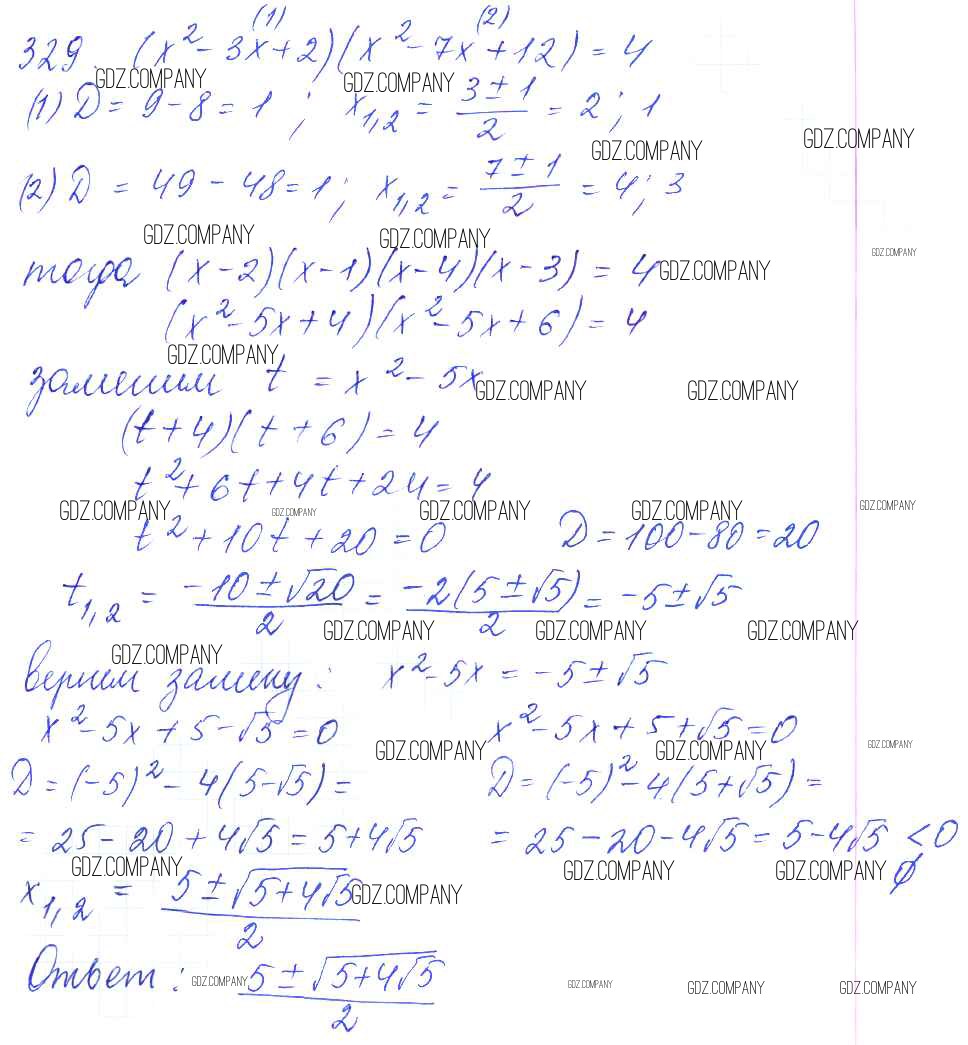 (1) (2)
329. (x² - 3x + 2)(x² - 7x + 12) = 4
GDZ.COMPANY GDZ.COMPANY
(1) D = 9 - 8 = 1 ; x₁,₂ = (3 ± 1)/2 = 2 ; 1
GDZ.COMPANY GDZ.COMPANY
(2) D = 49 - 48 = 1 ; x₁,₂ = (7 ± 1)/2 = 4 ; 3
GDZ.COMPANY GDZ.COMPANY GDZ.COMPANY
тогда (x - 2)(x - 1)(x - 4)(x - 3) = 4
GDZ.COMPANY
(x² - 5x + 4)(x² - 5x + 6) = 4
GDZ.COMPANY
заменим t = x² - 5x
GDZ.COMPANY GDZ.COMPANY
(t + 4)(t + 6) = 4
t² + 6t + 4t + 24 = 4
GDZ.COMPANY GDZ.COMPANY GDZ.COMPANY GDZ.COMPANY GDZ.COMPANY
t² + 10t + 20 = 0 D = 100 - 80 = 20
t₁,₂ = (-10 ± √20)/2 = -2(5 ± √5)/2 = -5 ± √5
GDZ.COMPANY GDZ.COMPANY GDZ.COMPANY
GDZ.COMPANY
вернем замену : x² - 5x = -5 ± √5
x² - 5x + 5 - √5 = 0 x² - 5x + 5 + √5 = 0
GDZ.COMPANY GDZ.COMPANY GDZ.COMPANY
D = (-5)² - 4(5 - √5) = D = (-5)² - 4(5 + √5) =
= 25 - 20 + 4√5 = 5 + 4√5 = 25 - 20 - 4√5 = 5 - 4√5 < 0
GDZ.COMPANY GDZ.COMPANY GDZ.COMPANY ∅
x₁,₂ = (5 ± √(5 + 4√5))/2
GDZ.COMPANY
Ответ : (5 ± √(5 + 4√5))/2
GDZ.COMPANY GDZ.COMPANY GDZ.COMPANY GDZ.COMPANY